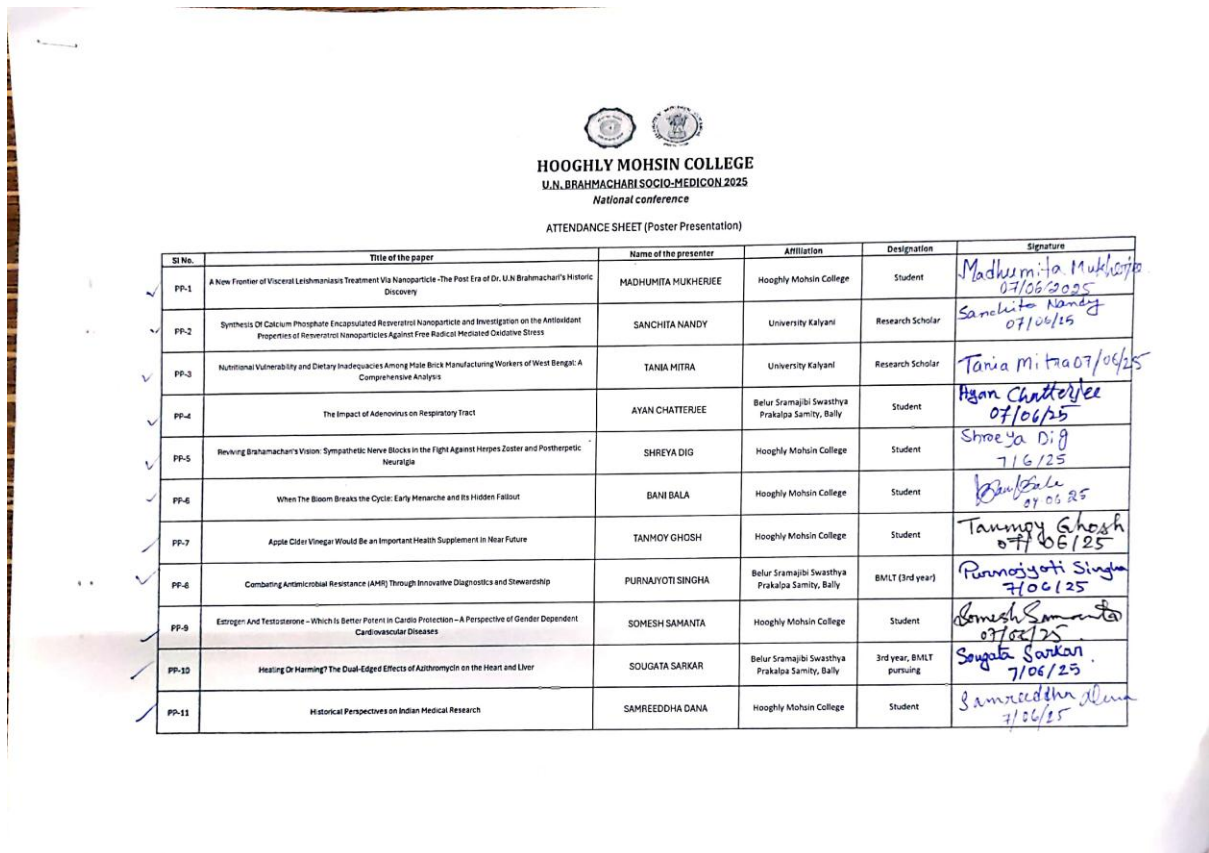 HOOGHLY MOHSIN COLLEGE
U.N. BRAHMACHARI SOCIO-MEDICON 2025
National conference
ATTENDANCE SHEET (Poster Presentation)
Sl No. Title of the paper Name of the presenter Affiliation Designation Signature
PP-1 A New Frontier of Visceral Leishmaniasis Treatment Via Nanoparticle -The Post Era of Dr. U.N Brahmachari's Historic Discovery MADHUMITA MUKHERJEE Hooghly Mohsin College Student Madhumita Mukherjee 07/06/2025
PP-2 Synthesis Of Calcium Phosphate Encapsulated Resveratrol Nanoparticle and Investigation on the Antioxidant Properties of Resveratrol Nanoparticles Against Free Radical Mediated Oxidative Stress SANCHITA NANDY University Kalyani Research Scholar Sanchita Nandy 07/06/25
PP-3 Nutritional Vulnerability and Dietary Inadequacies Among Male Brick Manufacturing Workers of West Bengal: A Comprehensive Analysis TANIA MITRA University Kalyani Research Scholar Tania Mitra 07/06/25
PP-4 The Impact of Adenovirus on Respiratory Tract AYAN CHATTERJEE Belur Sramajibi Swasthya Prakalpa Samity, Bally Student Ayan Chatterjee 07/06/25
PP-5 Reviving Brahamachari's Vision: Sympathetic Nerve Blocks in the Fight Against Herpes Zoster and Postherpetic Neuralgia SHREYA DIG Hooghly Mohsin College Student Shreya Dig 7/6/25
PP-6 When The Bloom Breaks the Cycle: Early Menarche and Its Hidden Fallout BANI BALA Hooghly Mohsin College Student Bani Bala 07 06 25
PP-7 Apple Cider Vinegar Would Be an Important Health Supplement in Near Future TANMOY GHOSH Hooghly Mohsin College Student Tanmoy Ghosh 07/06/25
PP-8 Combating Antimicrobial Resistance (AMR) Through Innovative Diagnostics and Stewardship PURNAJYOTI SINGHA Belur Sramajibi Swasthya Prakalpa Samity, Bally BMLT (3rd year) Purnajyoti Singha 7/06/25
PP-9 Estrogen And Testosterone – Which Is Better Potent in Cardio Protection – A Perspective of Gender Dependent Cardiovascular Diseases SOMESH SAMANTA Hooghly Mohsin College Student Somesh Samanta 07/06/25
PP-10 Healing Or Harming? The Dual-Edged Effects of Azithromycin on the Heart and Liver SOUGATA SARKAR Belur Sramajibi Swasthya Prakalpa Samity, Bally 3rd year, BMLT pursuing Sougata Sarkar 7/06/25
PP-11 Historical Perspectives on Indian Medical Research SAMREEDDHA DANA Hooghly Mohsin College Student Samreeddha Dana 7/06/25